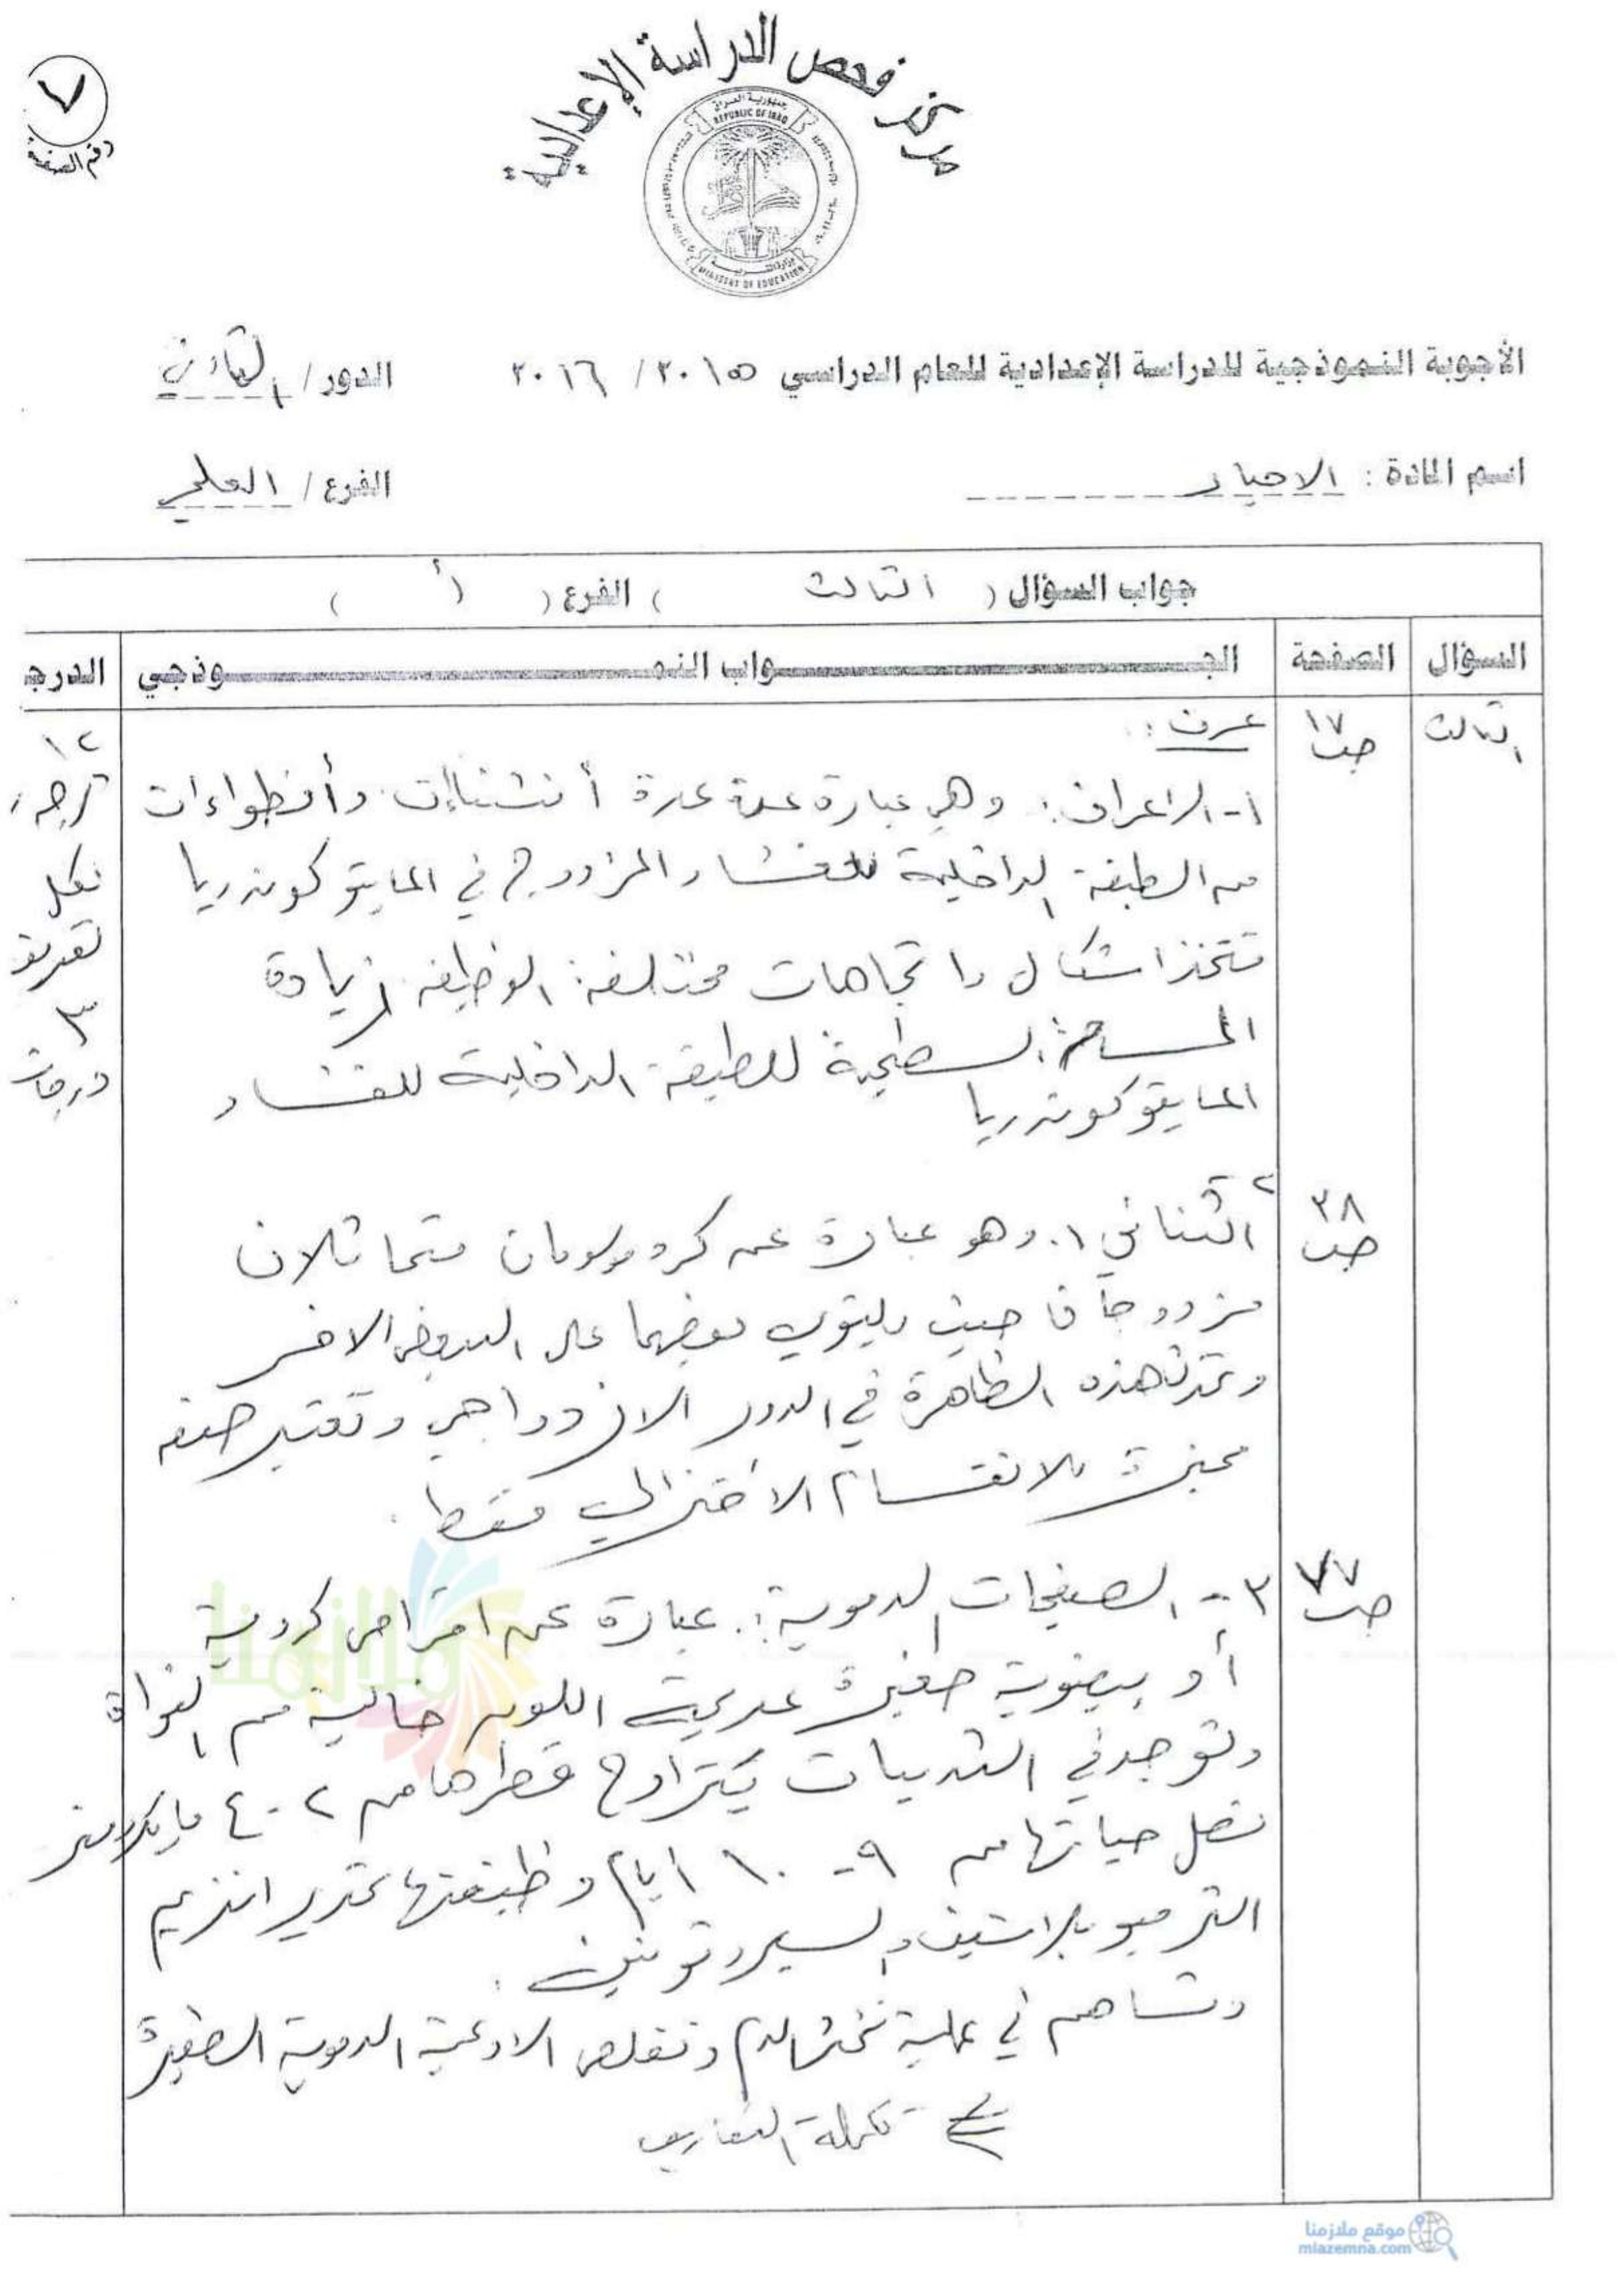 مركز فحص الدراسة الإعدادية
جمهورية العراق
REPUBLIC OF IRAQ
وزارة التربية
MINISTRY OF EDUCATION
٧
رقم الصفحة
الأجوبة النموذجية للدراسة الإعدادية للعام الدراسي ٢٠١٥ / ٢٠١٦ الدور / الثاني
اسم المادة : الاحياء الفرع / العلمي
جواب السؤال ( الثالث ) الفرع ( أ )
السؤال الصفحة الجـواب النمـوذجي الدرجـ
الثالث ص١٧ عرف : ١٢
١- الاعراف : وهي عبارة عن عدة أنثناءات وأنطواءات درجة
من الطبقة الداخلية للغشاء المزدوج في المايتوكوندريا لكل
تتخذ اشكال واتجاهات مختلفة الوظيفة زيادة تعريف
المساحة السطحية للطبقة الداخلية للغشاء ٣
المايتوكوندريا درجات
ص٣٨ ٢ الثنائي . وهو عبارة عن كروموسومان متماثلان
مزدوجان حيث يلتوي بعضهما على البعض الاخر
وتحدث هذه الظاهرة في الدور الازدواجي وتعتبر صفة
مميزة للانقسام الاختزالي فقط .
ص٧٧ ٣- الصفيحات الدموية : عبارة عن اقراص كروية
أو بيضوية صغيرة عديمة اللون خالية من النواة
وتوجد في الثدييات يتراوح قطرها من ٢ - ٤ مايكرومتر
تصل حياتها من ٩ - ١٠ ايام وظيفتها تحرير انزيم
الثرمبوبلاستين والسيروتونين .
وتساهم في عملية تخثر الدم وتقلص الاوعية الدموية الصغيرة
تكملة التعاريف
ملازمنا
موقع ملازمنا
mlazemna.com